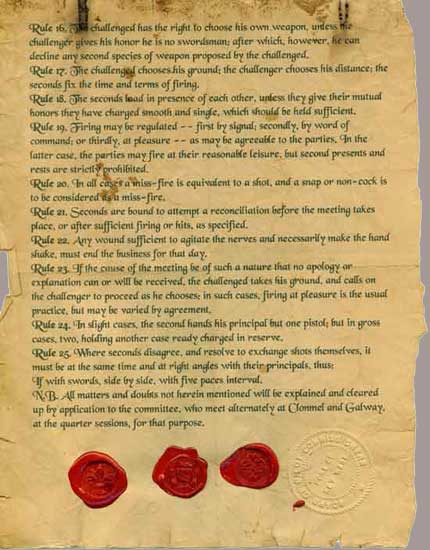 Rule 16. The challenged has the right to choose his own weapon, unless the
challenger gives his honor he is no swordsman; after which, however, he can
decline any second species of weapon proposed by the challenged.
Rule 17. The challenged chooses his ground; the challenger chooses his distance; the
seconds fix the time and terms of firing.
Rule 18. The seconds load in presence of each other, unless they give their mutual
honors they have charged smooth and single, which should be held sufficient.
Rule 19. Firing may be regulated -- first by signal; secondly, by word of
command; or thirdly, at pleasure -- as may be agreeable to the parties. In the
latter case, the parties may fire at their reasonable leisure, but second presents and
rests are strictly prohibited.
Rule 20. In all cases a miss-fire is equivalent to a shot, and a snap or non-cock is
to be considered as a miss-fire.
Rule 21. Seconds are bound to attempt a reconciliation before the meeting takes
place, or after sufficient firing or hits, as specified.
Rule 22. Any wound sufficient to agitate the nerves and necessarily make the hand
shake, must end the business for that day.
Rule 23. If the cause of the meeting be of such a nature that no apology or
explanation can or will be received, the challenged takes his ground, and calls on
the challenger to proceed as he chooses; in such cases, firing at pleasure is the usual
practice, but may be varied by agreement.
Rule 24. In slight cases, the second hands his principal but one pistol; but in gross
cases, two, holding another case ready charged in reserve.
Rule 25. Where seconds disagree, and resolve to exchange shots themselves, it
must be at the same time and at right angles with their principals, thus:
If with swords, side by side, with five paces interval.
N.B. All matters and doubts not herein mentioned will be explained and cleared
up by application to the committee, who meet alternately at Clonmel and Galway,
at the quarter sessions, for that purpose.